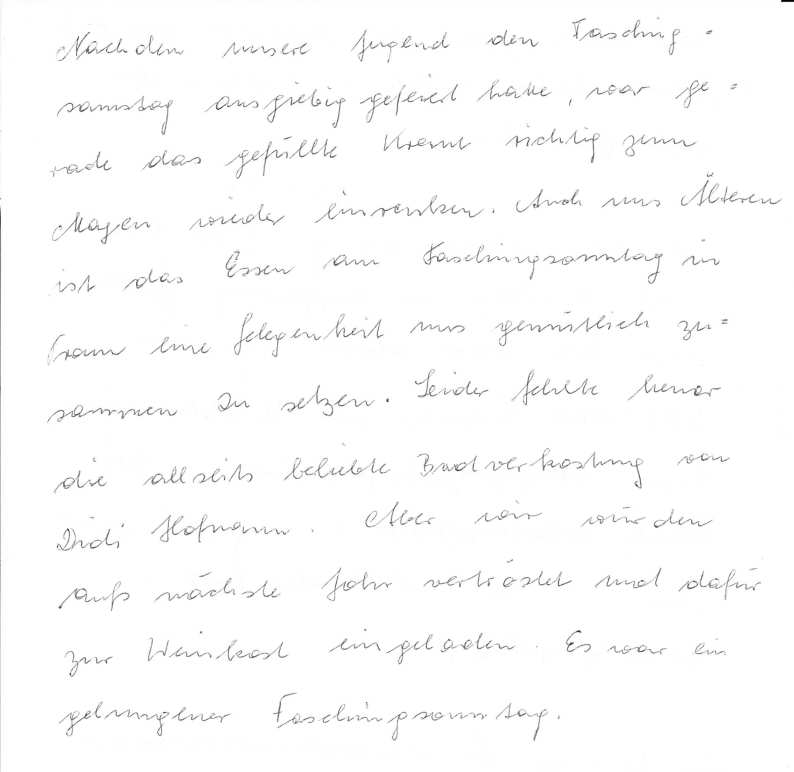 Nachdem unsere Jugend den Fasching-
samstag ausgiebig gefeiert hatte, war ge=
rade das gefüllte Kraut richtig zum
Magen wieder einrenken. Auch uns Älteren
ist das Essen am Faschingsonntag in
eine Gelegenheit uns gemütlich zu=
sammen zu setzen. Leider fehlte heuer
die allseits beliebte Brotverkostung von
Didi Hofmann. Aber wir würden
aufs nächste Jahr vertröstet und dafür
zur Weinkost eingeladen. Es war ein
gelungener Faschingsonntag.